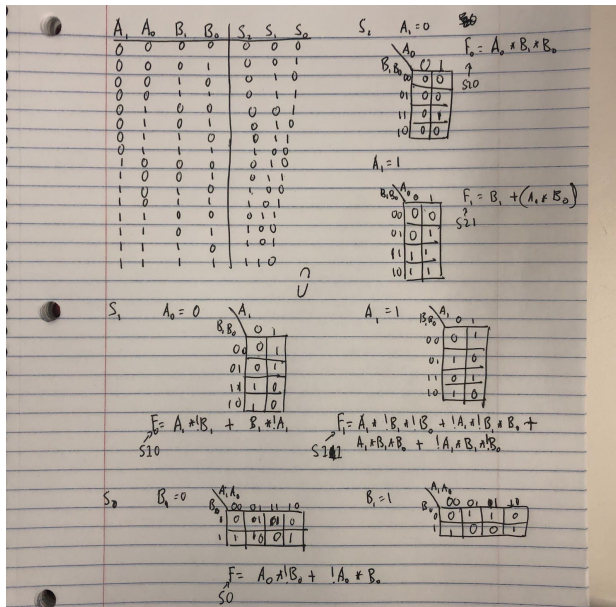 A₁ A₀ B₁ B₀ S₂ S₁ S₀
0 0 0 0 0 0 0
0 0 0 1 0 0 1
0 0 1 0 0 1 0
0 0 1 1 0 1 1
0 1 0 0 0 0 1
0 1 0 1 0 1 0
0 1 1 0 0 1 1
0 1 1 1 1 0 0
1 0 0 0 0 1 0
1 0 0 1 0 1 1
1 0 1 0 1 0 0
1 0 1 1 1 0 1
1 1 0 0 0 1 1
1 1 0 1 1 0 0
1 1 1 0 1 0 1
1 1 1 1 1 1 0
S₂ A₁=0
A₀
B₁B₀ 0 1
00 0 0
01 0 0
11 0 1
10 0 0
F₀ = A₀ * B₁ * B₀
S20
A₁=1
B₁B₀ A₀ 0 1
00 0 0
01 0 1
11 1 1
10 1 1
F₁ = B₁ + (A₀ * B₀)
S21
S₁ A₀ = 0
A₁
B₁B₀ 0 1
00 0 1
01 0 1
11 1 0
10 1 0
F₀ = A₁ * !B₁ + B₁ * !A₁
S10
A₁ = 1
A₁
B₁B₀ 0 1
00 0 1
01 1 0
11 0 1
10 1 0
F₁ = A₁ * !B₁ * !B₀ + !A₁ * !B₁ * B₀ +
A₁ * B₁ * B₀ + !A₁ * B₁ * !B₀
S11
S₀ B₁=0
A₁A₀
B₀ 00 01 11 10
0 0 1 1 0
1 1 0 0 1
B₁=1
A₁A₀
B₀ 00 01 11 10
0 0 1 1 0
1 1 0 0 1
F = A₀ * !B₀ + !A₀ * B₀
S0